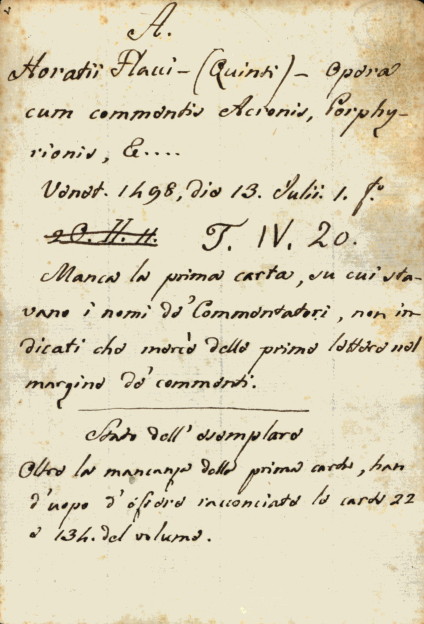 A.
Horatii Flacci – (Quinti) – Opera
cum commentis Acronis, Porphy-
rionis, &....
Venet. 1498, die 13. Julii. 1. fo.
T. IV. 20.
Manca la prima carta, su cui sta-
vano i nomi de' Commentatori, non in-
dicati che mercè delle prime lettere nel
margine de' commenti.
Stato dell' esemplare
Oltre la mancanza della prima carta, han
d'uopo d'essere racconciate le carte 22
e 134. del volume.